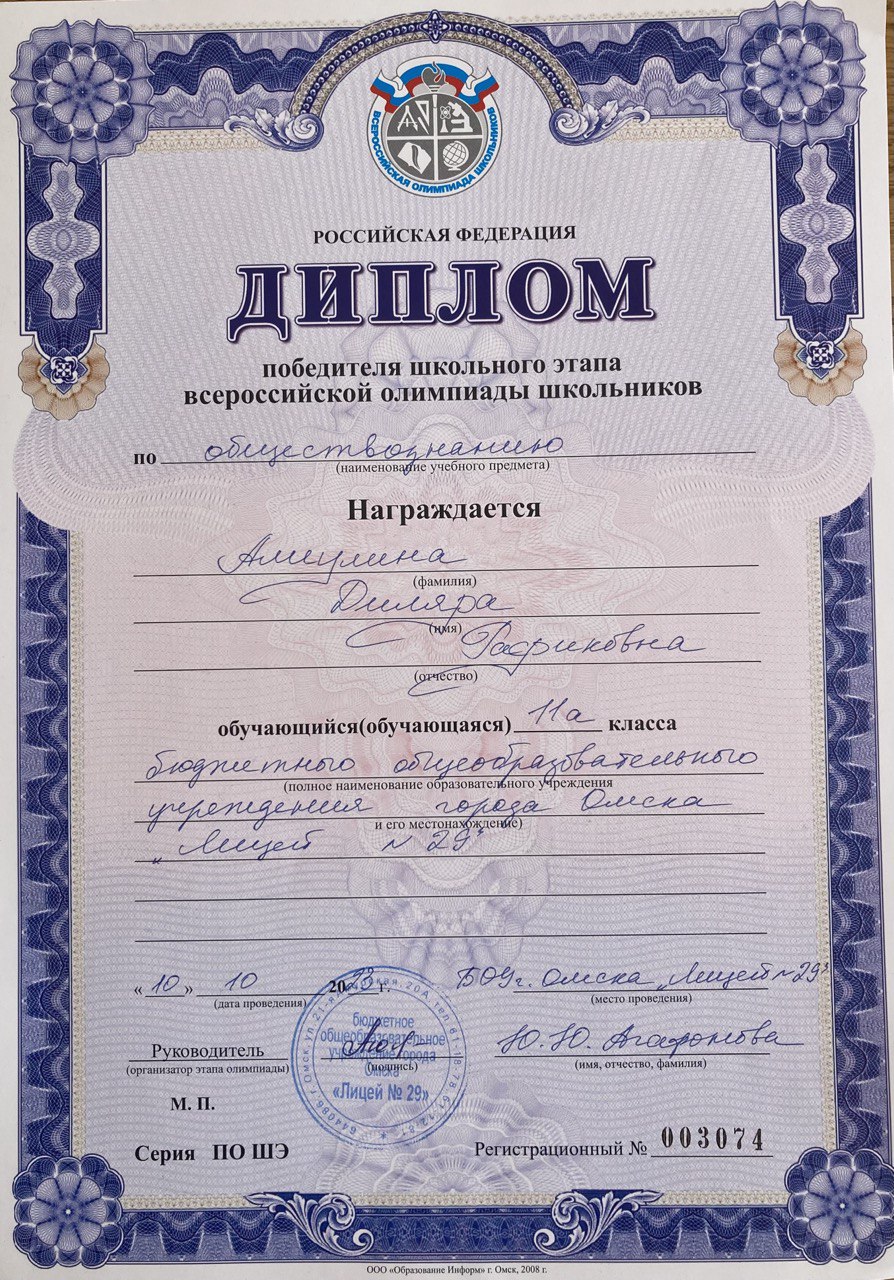 ВСЕРОССИЙСКАЯ ОЛИМПИАДА ШКОЛЬНИКОВ
РОССИЙСКАЯ ФЕДЕРАЦИЯ
ДИПЛОМ
победителя школьного этапа
всероссийской олимпиады школьников
по обществознанию
(наименование учебного предмета)
Награждается
Амулина
(фамилия)
Диляра
(имя)
Рафиковна
(отчество)
обучающийся(обучающаяся) 11а класса
бюджетного общеобразовательного
(полное наименование образовательного учреждения
учреждения города Омска
и его местонахождение)
„Лицей № 29"
«10» 10 2023 г. БОУ г. Омска „Лицей № 29"
(дата проведения) (место проведения)
Руководитель Ю.Ю. Агафонова
(организатор этапа олимпиады) (подпись) (имя, отчество, фамилия)
бюджетное
общеобразовательное
учреждение города
Омска
«Лицей № 29»
М. П.
Серия ПО ШЭ Регистрационный № 003074
ООО «Образование Информ» г. Омск, 2008 г.